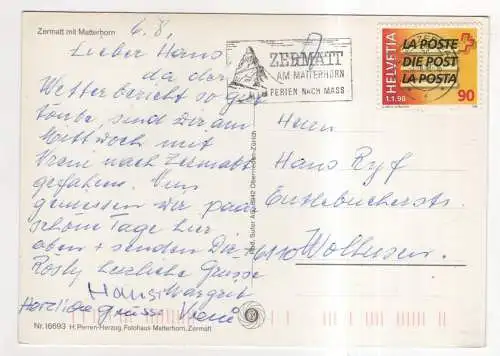 Zermatt mit Matterhorn
6.8.
Lieber Hans
da der
Wetterbericht so gut
sind wir am
Mittwoch mit
Vreni nach Zermatt
gefahren. Nun
geniessen wir paar
schöne Tage hier
oben + senden Dir
Rösly herzliche Grüsse
Hansi Margrit
Herzliche grüsse Vreni
Nr. 16693 H. Perren-Herzog, Fotohaus Matterhorn, Zermatt
ZERMATT
AM MATTERHORN
FERIEN NACH MASS
HELVETIA
1.1.98
LA POSTE
DIE POST
LA POSTA
90
Herrn
Hans Ryf
Entlebucherstr.
6110 Wolhusen